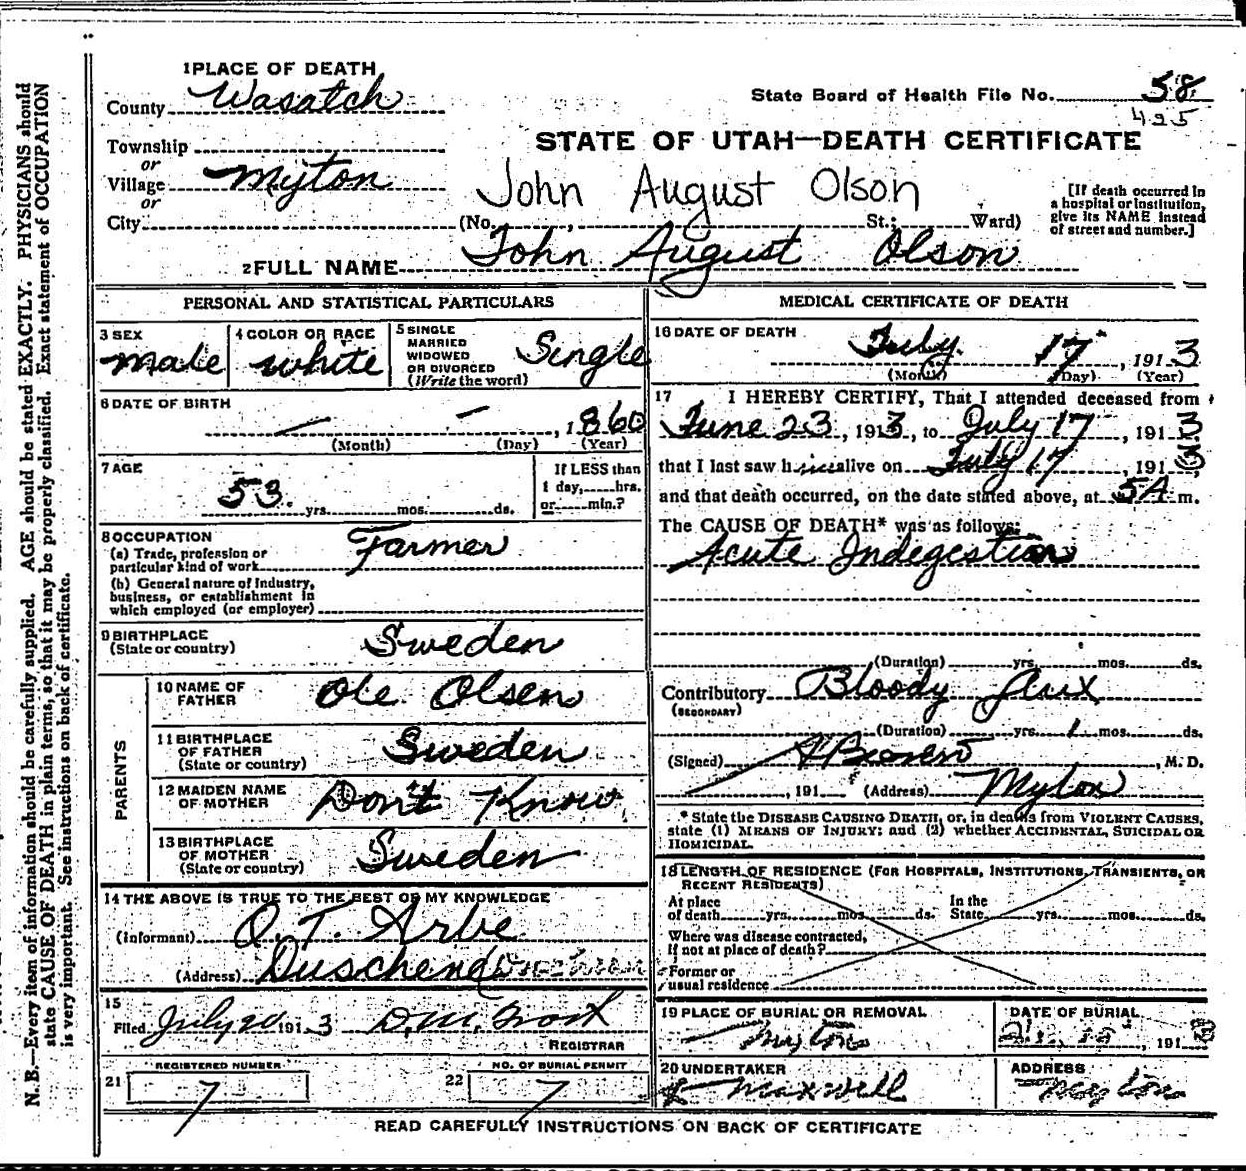 N. B.—Every item of information should be carefully supplied. AGE should be stated EXACTLY. PHYSICIANS should
state CAUSE OF DEATH in plain terms, so that it may be properly classified. Exact statement of OCCUPATION
is very important. See instructions on back of certificate.
1 PLACE OF DEATH
County Wasatch
State Board of Health File No. 58
425
Township
or
Village Myton
or
City
STATE OF UTAH—DEATH CERTIFICATE
John August Olson
(No. , St.; Ward)
[If death occurred in
a hospital or institution,
give its NAME instead
of street and number.]
2 FULL NAME John August Olson
PERSONAL AND STATISTICAL PARTICULARS
3 SEX
Male
4 COLOR OR RACE
White
5 SINGLE
MARRIED
WIDOWED
OR DIVORCED
(Write the word)
Single
6 DATE OF BIRTH
— — , 1860
(Month) (Day) (Year)
7 AGE
53 yrs. mos. ds.
If LESS than
1 day, hrs.
or min.?
8 OCCUPATION
(a) Trade, profession or
particular kind of work Farmer
(b) General nature of Industry,
business, or establishment in
which employed (or employer)
9 BIRTHPLACE
(State or country) Sweden
PARENTS
10 NAME OF
FATHER Ole Olsen
11 BIRTHPLACE
OF FATHER
(State or country) Sweden
12 MAIDEN NAME
OF MOTHER Don't Know
13 BIRTHPLACE
OF MOTHER
(State or country) Sweden
14 THE ABOVE IS TRUE TO THE BEST OF MY KNOWLEDGE
(Informant) O. T. Arbe
(Address)
15
Filed July 20 1913
REGISTRAR
REGISTERED NUMBER
21 7
NO. OF BURIAL PERMIT
22 7
MEDICAL CERTIFICATE OF DEATH
16 DATE OF DEATH
July 17 , 1913
(Month) (Day) (Year)
17 I HEREBY CERTIFY, That I attended deceased from
June 23, 1913, to July 17, 1913
that I last saw him alive on July 17, 1913
and that death occurred, on the date stated above, at 5A m.
The CAUSE OF DEATH* was as follows:
Acute Indegestion
(Duration) yrs. mos. ds.
Contributory Bloody Flux
(SECONDARY)
(Duration) yrs. 1 mos. ds.
(Signed) , M. D.
, 191 (Address) Myton
* State the DISEASE CAUSING DEATH, or, in deaths from VIOLENT CAUSES,
state (1) MEANS OF INJURY; and (2) whether ACCIDENTAL, SUICIDAL OR
HOMICIDAL.
18 LENGTH OF RESIDENCE (FOR HOSPITALS, INSTITUTIONS, TRANSIENTS, OR
RECENT RESIDENTS)
At place
of death yrs. mos. ds.
In the
State yrs. mos. ds.
Where was disease contracted,
if not at place of death?
Former or
usual residence
19 PLACE OF BURIAL OR REMOVAL
Myton
DATE OF BURIAL
, 191
20 UNDERTAKER
Maxwell
ADDRESS
Myton
READ CAREFULLY INSTRUCTIONS ON BACK OF CERTIFICATE